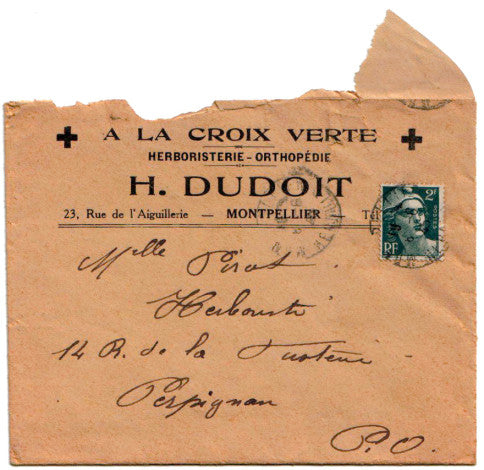 A LA CROIX VERTE
HERBORISTERIE - ORTHOPÉDIE
H. DUDOIT
23, Rue de l'Aiguillerie — MONTPELLIER — Tél
2F
RF
Mlle Pérot
Herboriste
14 R. de la Fusterie
Perpignan
P.O.